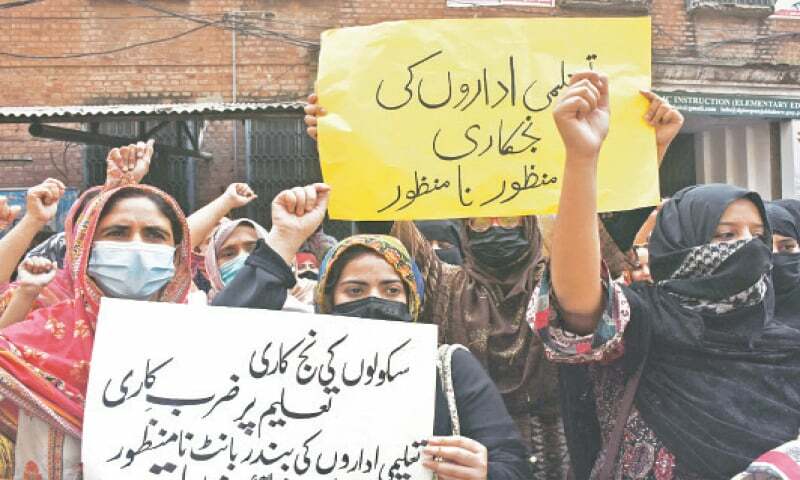 تعلیمی اداروں کی
نجکاری
منظور نا منظور
IC INSTRUCTION (ELEMENTARY ED
سکولوں کی نج کاری
تعلیم پر ضربِ کاری
تعلیمی اداروں کی بندر بانٹ نا منظور